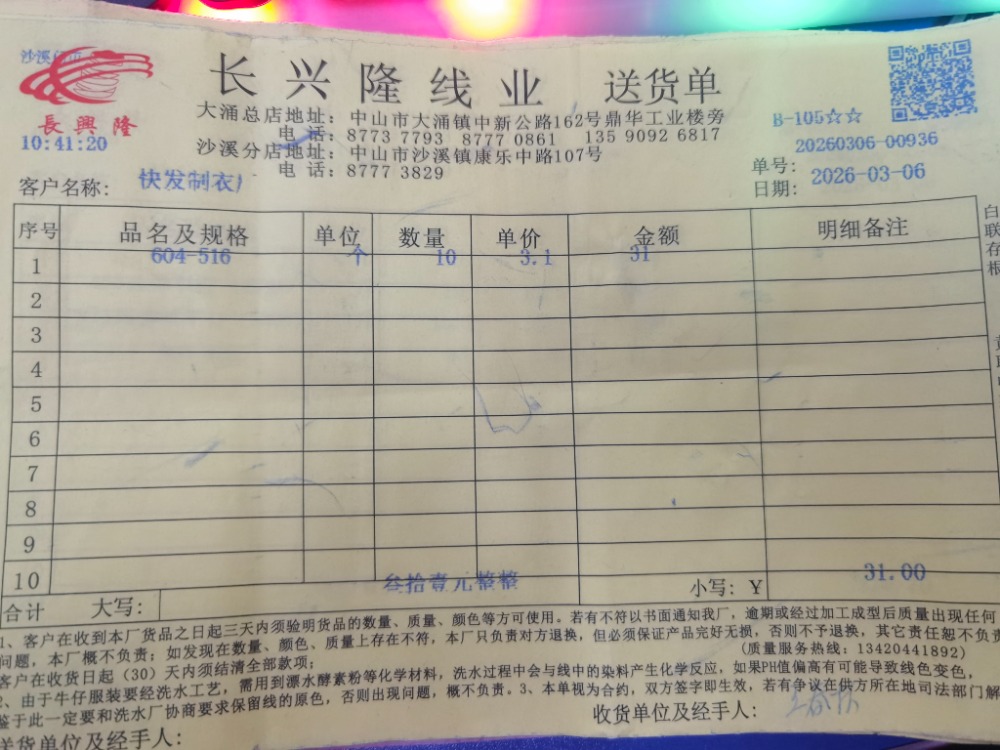 沙溪
長興隆
10:41:20
长兴隆线业 送货单
大涌总店地址：中山市大涌镇中新公路162号鼎华工业楼旁
电 话：8773 7793 8777 0861 135 9092 6817
沙溪分店地址：中山市沙溪镇康乐中路107号
电 话：8777 3829
B-105☆☆
单号：20260306-00936
日期：2026-03-06
客户名称：快发制衣厂
序号 品名及规格 单位 数量 单价 金额 明细备注
1 604-516 个 10 3.1 31
2
3
4
5
6
7
8
9
10
合计 大写：叁拾壹元整整 小写：Y 31.00
1、客户在收到本厂货品之日起三天内须验明货品的数量、质量、颜色等方可使用。若有不符以书面通知我厂，逾期或经过加工成型后质量出现任何
问题，本厂概不负责；如发现在数量、颜色、质量上存在不符，本厂只负责对方退换，但必须保证产品完好无损，否则不予退换，其它责任恕不负责
（质量服务热线：13420441892）
客户在收货日起（30）天内须结清全部款项；
2、由于牛仔服装要经洗水工艺，需用到漂水酵素粉等化学材料，洗水过程中会与线中的染料产生化学反应，如果PH值偏高有可能导致线色变色，
鉴于此一定要和洗水厂协商要求保留线的原色，否则出现问题，概不负责。3、本单视为合约，双方签字即生效，若有争议在供方所在地司法部门解
送货单位及经手人：
收货单位及经手人：
白联存根